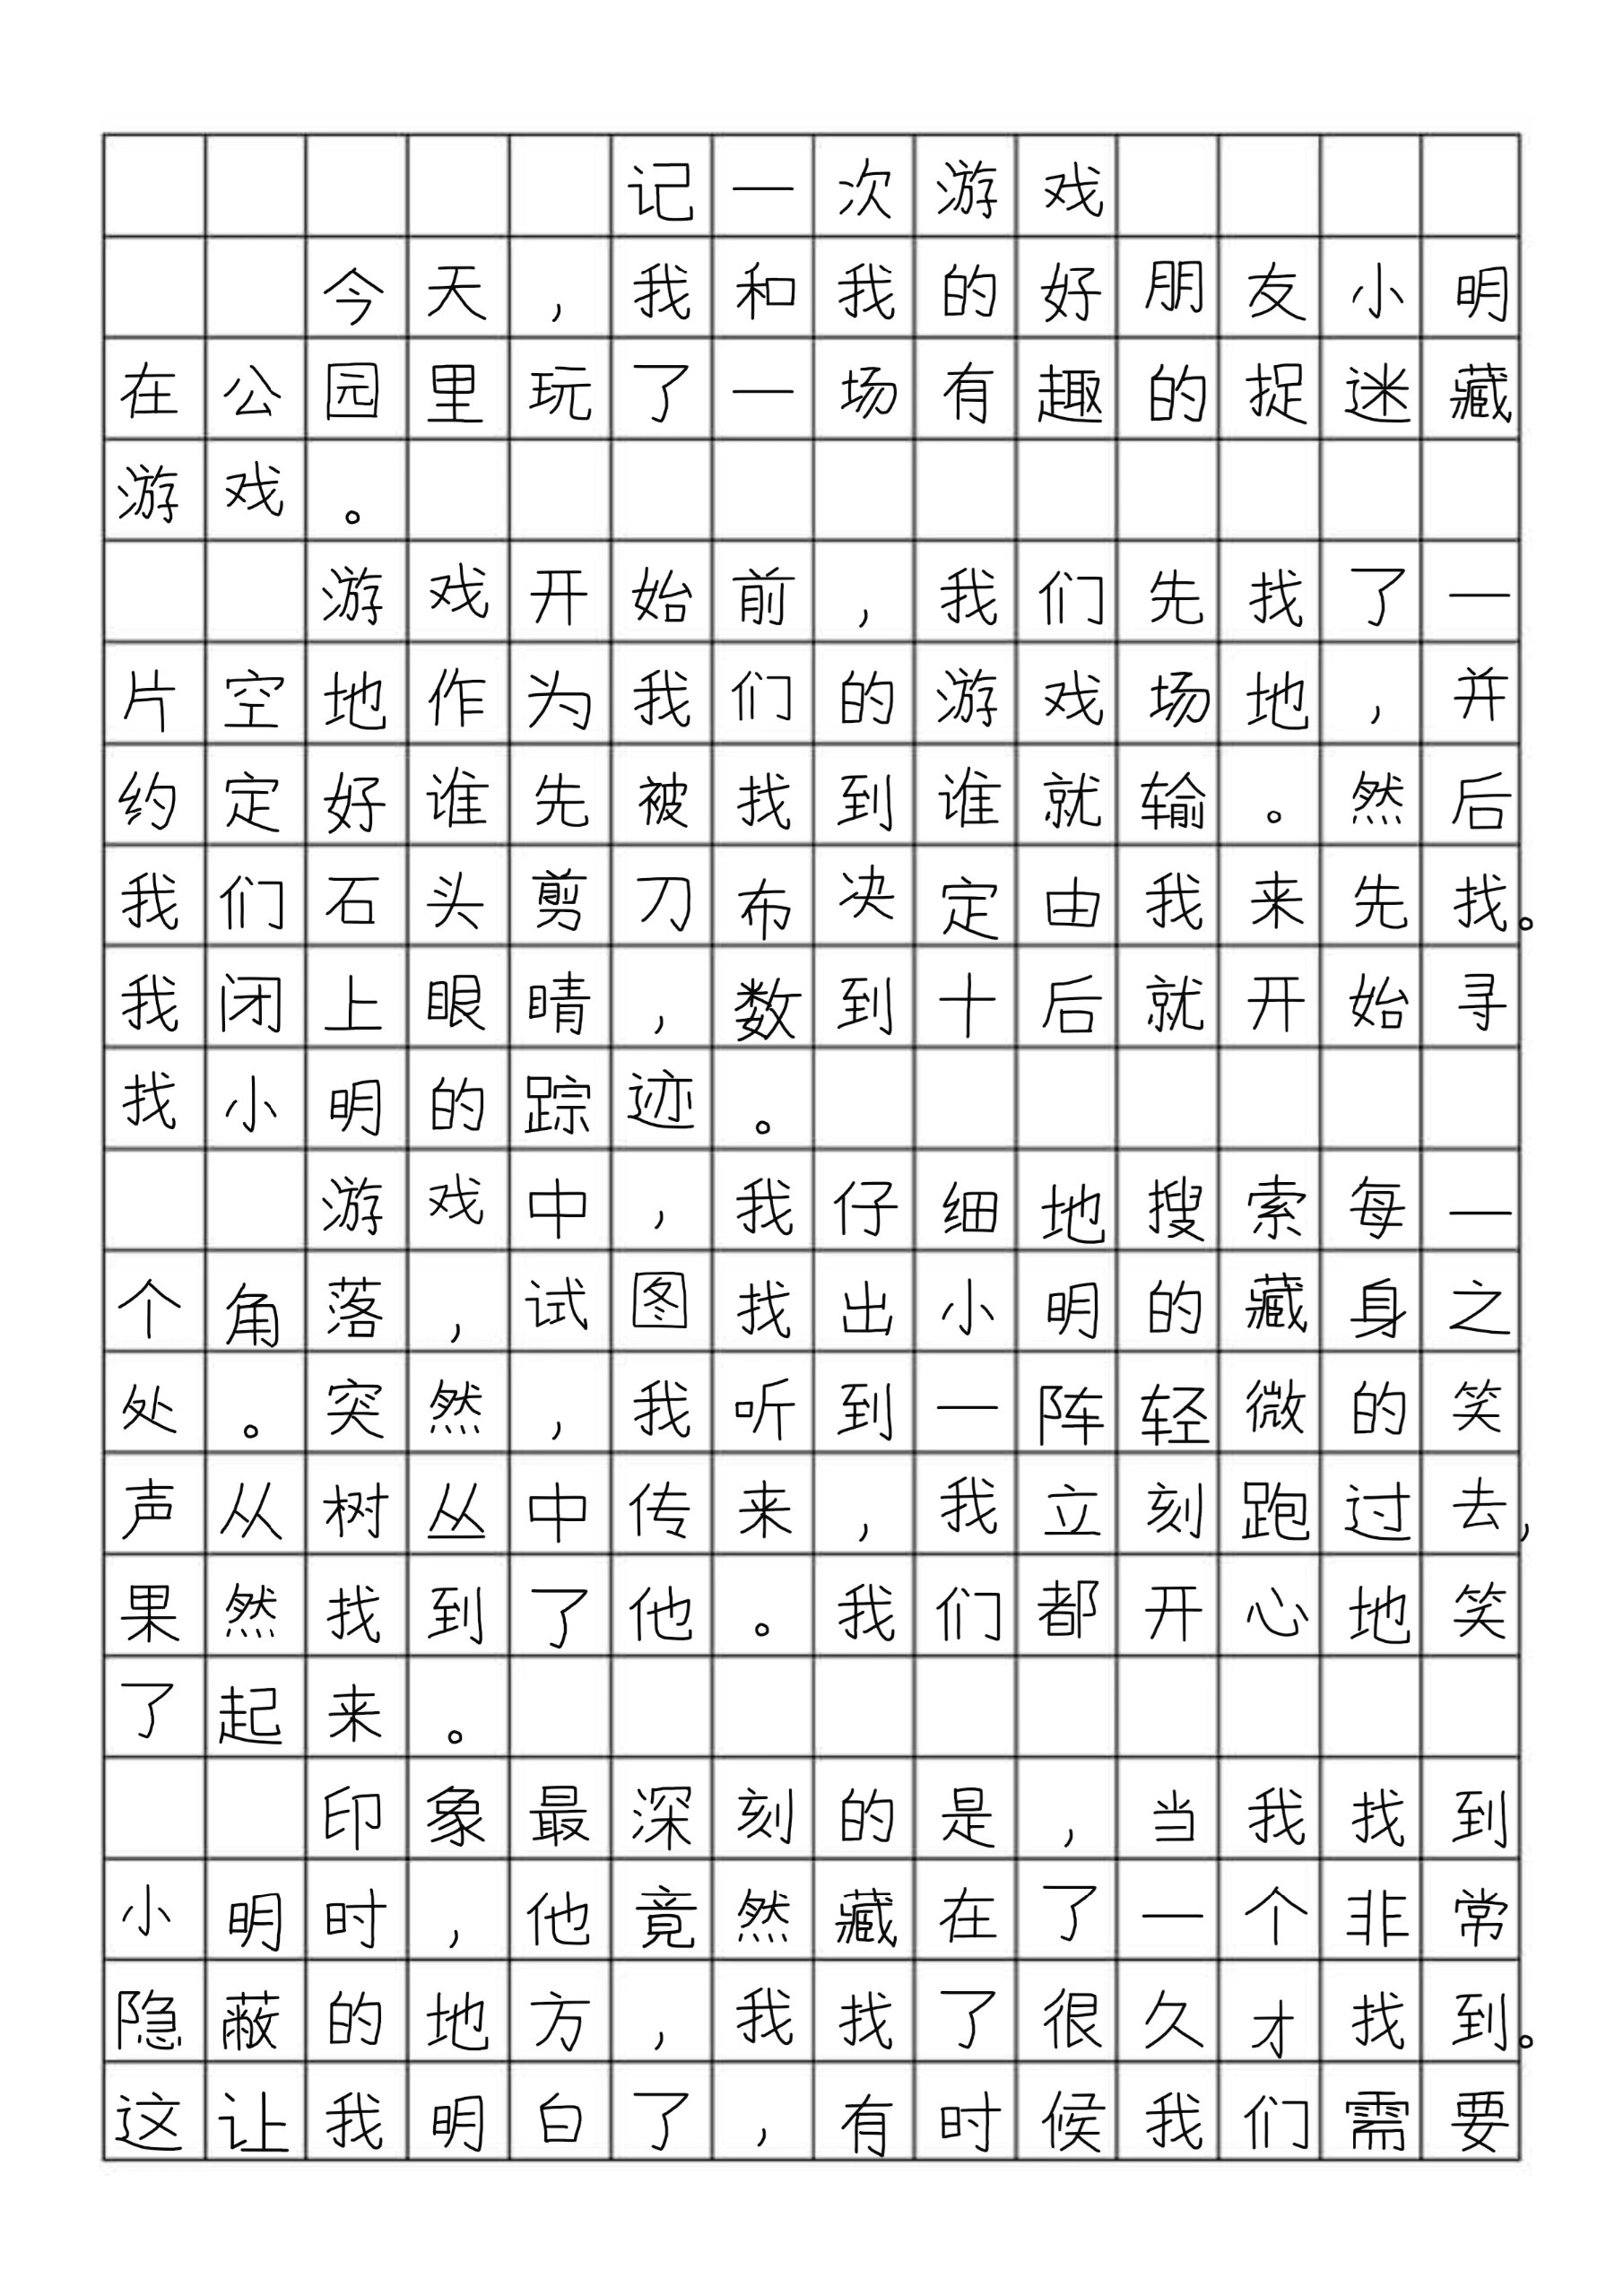 记一次游戏
今天，我和我的好朋友小明
在公园里玩了一场有趣的捉迷藏
游戏。
游戏开始前，我们先找了一
片空地作为我们的游戏场地，并
约定好谁先被找到谁就输。然后
我们石头剪刀布决定由我来先找。
我闭上眼睛，数到十后就开始寻
找小明的踪迹。
游戏中，我仔细地搜索每一
个角落，试图找出小明的藏身之
处。突然，我听到一阵轻微的笑
声从树丛中传来，我立刻跑过去，
果然找到了他。我们都开心地笑
了起来。
印象最深刻的是，当我找到
小明时，他竟然藏在了一个非常
隐蔽的地方，我找了很久才找到。
这让我明白了，有时候我们需要